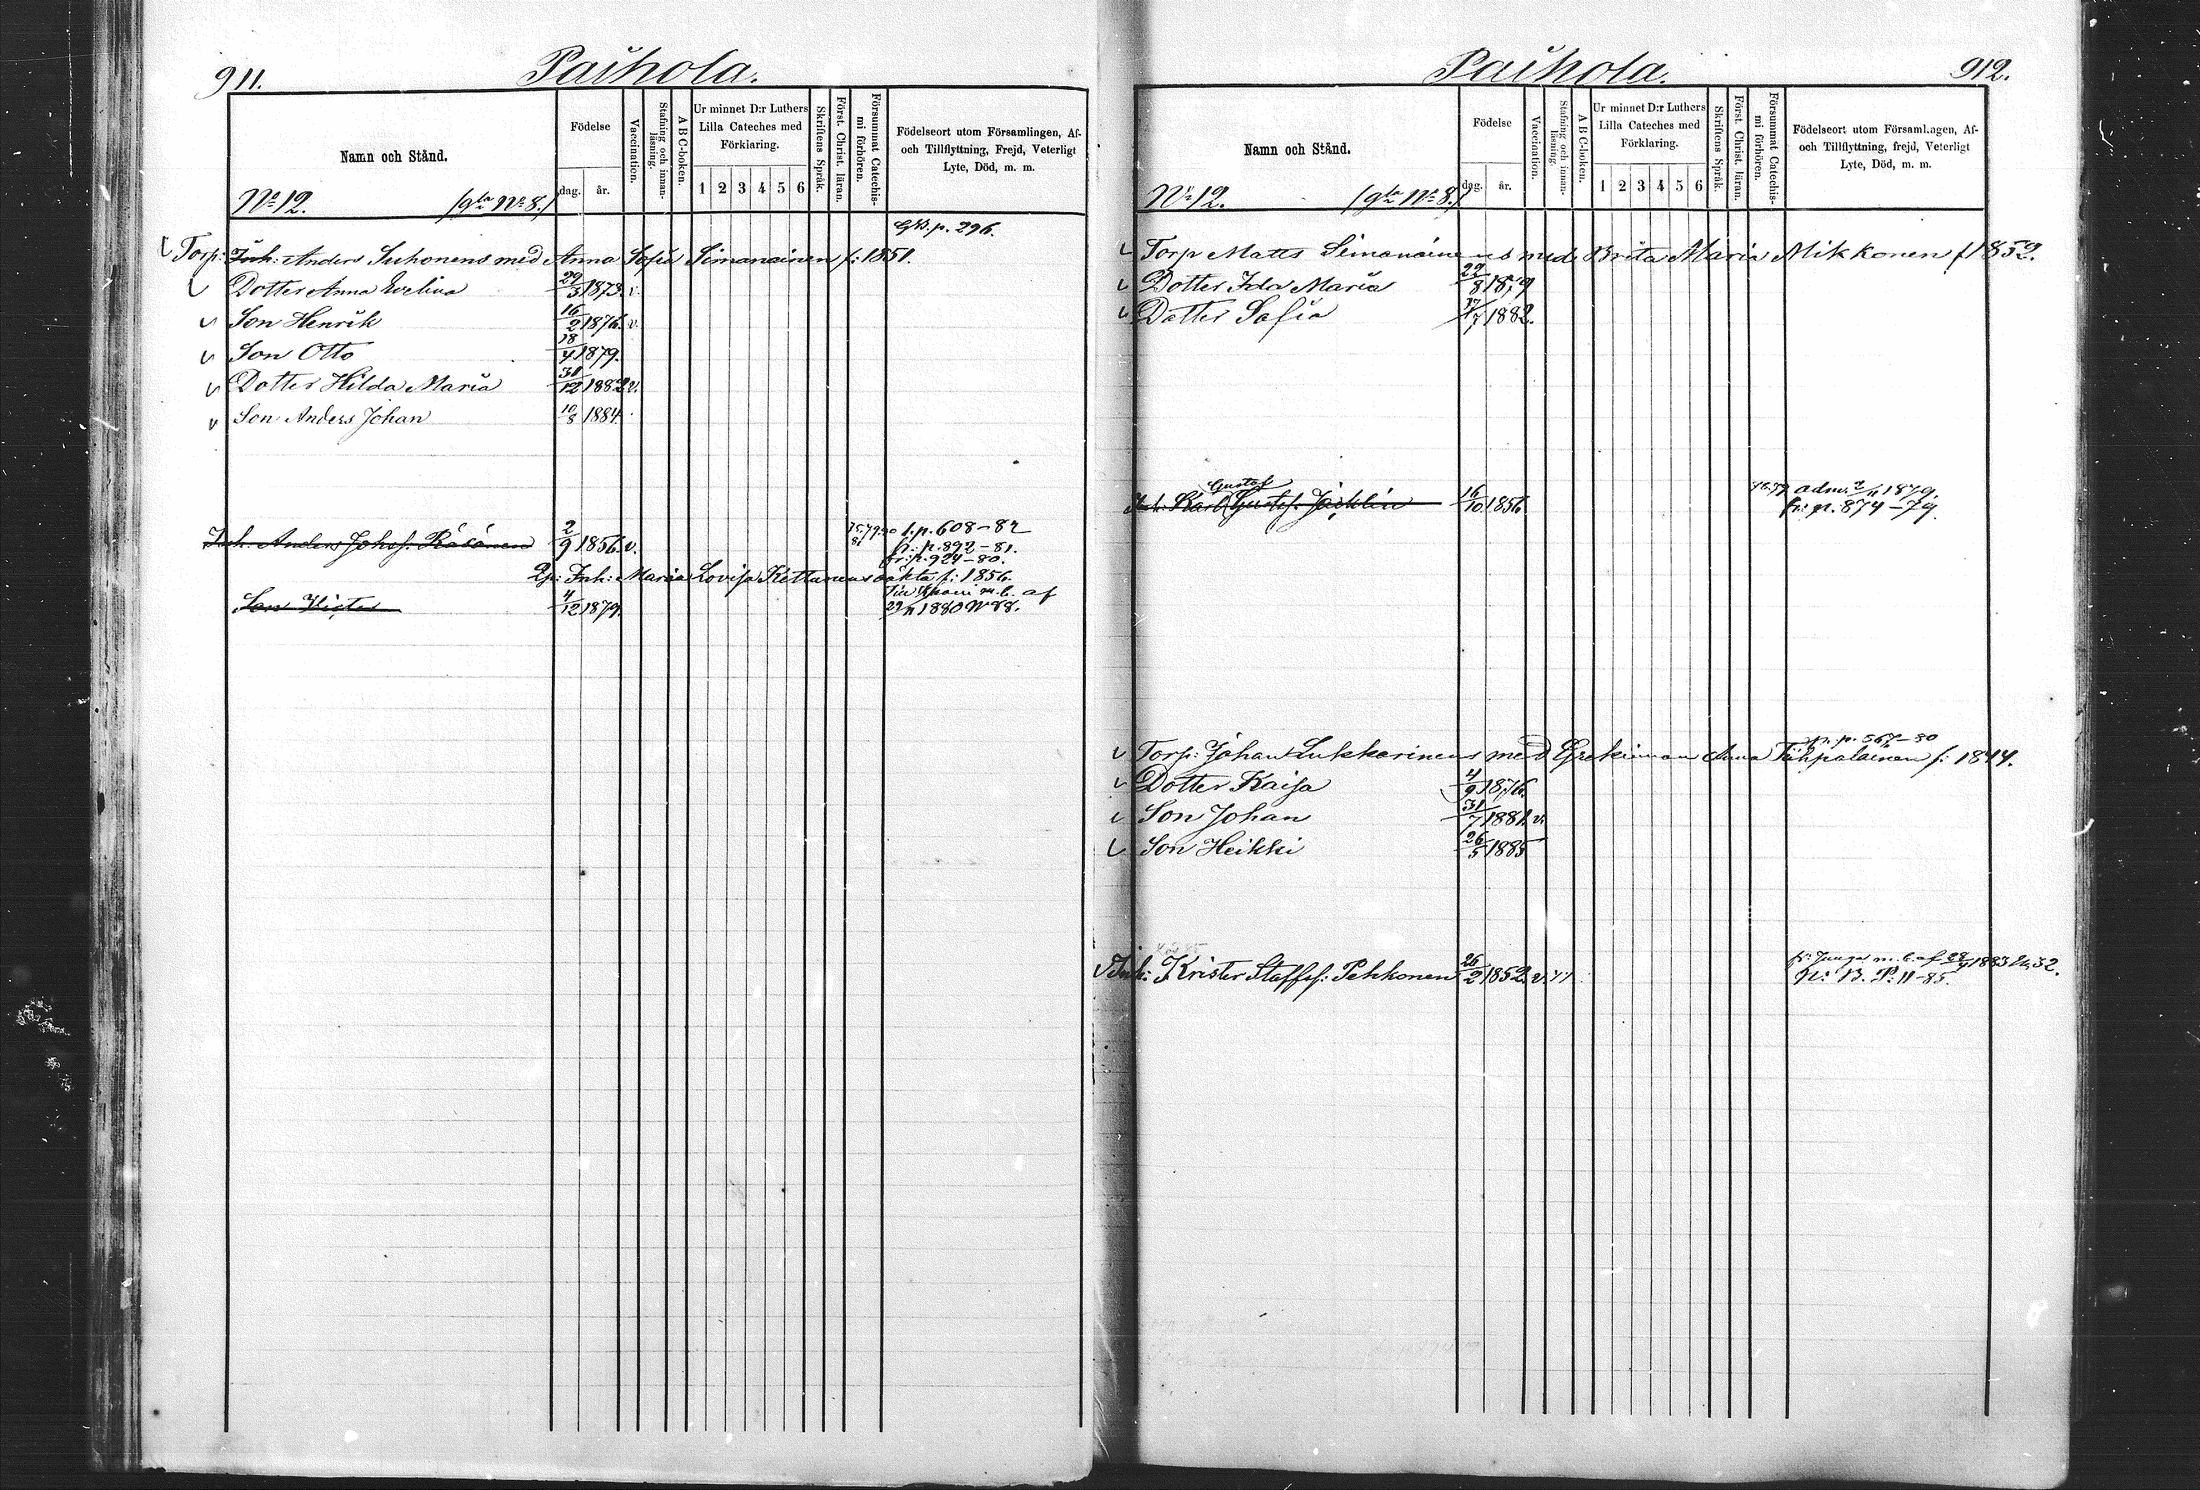 911.
Paihola.
Namn och Stånd.
Födelse
dag. år.
Vaccination.
Stafning och innan-läsning.
A B C-boken.
Ur minnet D:r Luthers
Lilla Cateches med
Förklaring.
1 2 3 4 5 6
Skriftens Språk.
Först. Christ. läran.
Försummat Catechis-mi förhören.
Födelseort utom Församlingen, Af-
och Tillflyttning, Frejd, Veterligt
Lyte, Död, m. m.
No 12. (gla No 8.)
GB. p. 296.
Torp: Inh: Anders Suhonens med Anna Sofia Simanainen f: 1851.
Dotter Anna Evelina 29/3 1873. v.
Son Henrik 16/2 1876. v.
Son Otto 18/4 1879.
Dotter Hilda Maria 31/12 1882 v.
Son Anders Johan 10/8 1884.
Inh. Anders Johsf. Räsänen 2/9 1856. v. t. p. 608-82
fr. p. 892-81.
fr: p. 924-80.
Inh: Maria Lovisa Kettunens oäkta f: 1856.
Son Victor 4/12 1879. m. b. af
29/11 1880 No 88.
912.
Paihola.
Namn och Stånd.
Födelse
dag. år.
Vaccination.
Stafning och innan-läsning.
A B C-boken.
Ur minnet D:r Luthers
Lilla Cateches med
Förklaring.
1 2 3 4 5 6
Skriftens Språk.
Först. Christ. läran.
Försummat Catechis-mi förhören.
Födelseort utom Församlingen, Af-
och Tillflyttning, frejd, Veterligt
Lyte, Död, m. m.
No 12. (gla No 8.)
Torp Matts Simanainens med Brita Maria Mikkonen f 1852.
Dotter Ida Maria 22/8 1879
Dotter Sofia 17/7 1882.
Gustaf
Inh: Karl Gustfsf. Jäcklin 16/10 1856 adm. 2/11 1879.
fr: p. 874-79.
fr. p. 567-80
Torp: Johan Lukkarinens med Grekinnan Anna Tiihpalainen f: 1844.
Dotter Kaisa 4/9 1876.
Son Johan 31/7 1881. v.
Son Heikki 26/5 1885
Inh: Krister Staffsf: Pekkonen 26/2 1852. v. fr: m. b. af 28/9 1883 No 32.
N: B. P: 11-85.